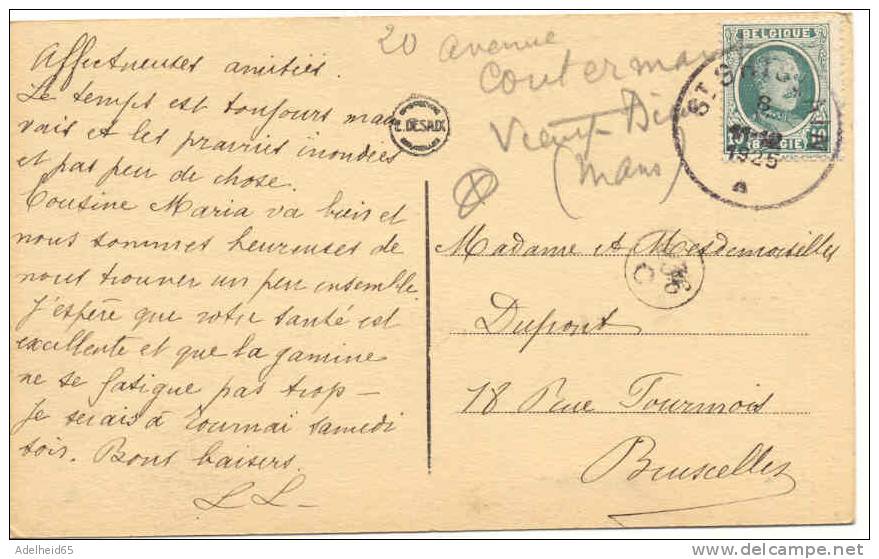 Affectueuses amitiés.
Le temps est toujours mau
vais et les prairies inondées
et pas peu de chose.
Cousine Maria va bien et
nous sommes heureuses de
nous trouver un peu ensemble.
J'espère que votre santé est
excellente et que la gamine
ne se fatigue pas trop —
Je serais à Tournai samedi
soir. Bons baisers.
LL-
E. DESAIX
20 avenue
Vieux-
BELGIQUE
BELGIE
ST
8
11-12
1925
a
Madame et Mesdemoiselles
Dupont
18 Rue Tournois
Bruxelles
Adelheid65
www.delcampe.net